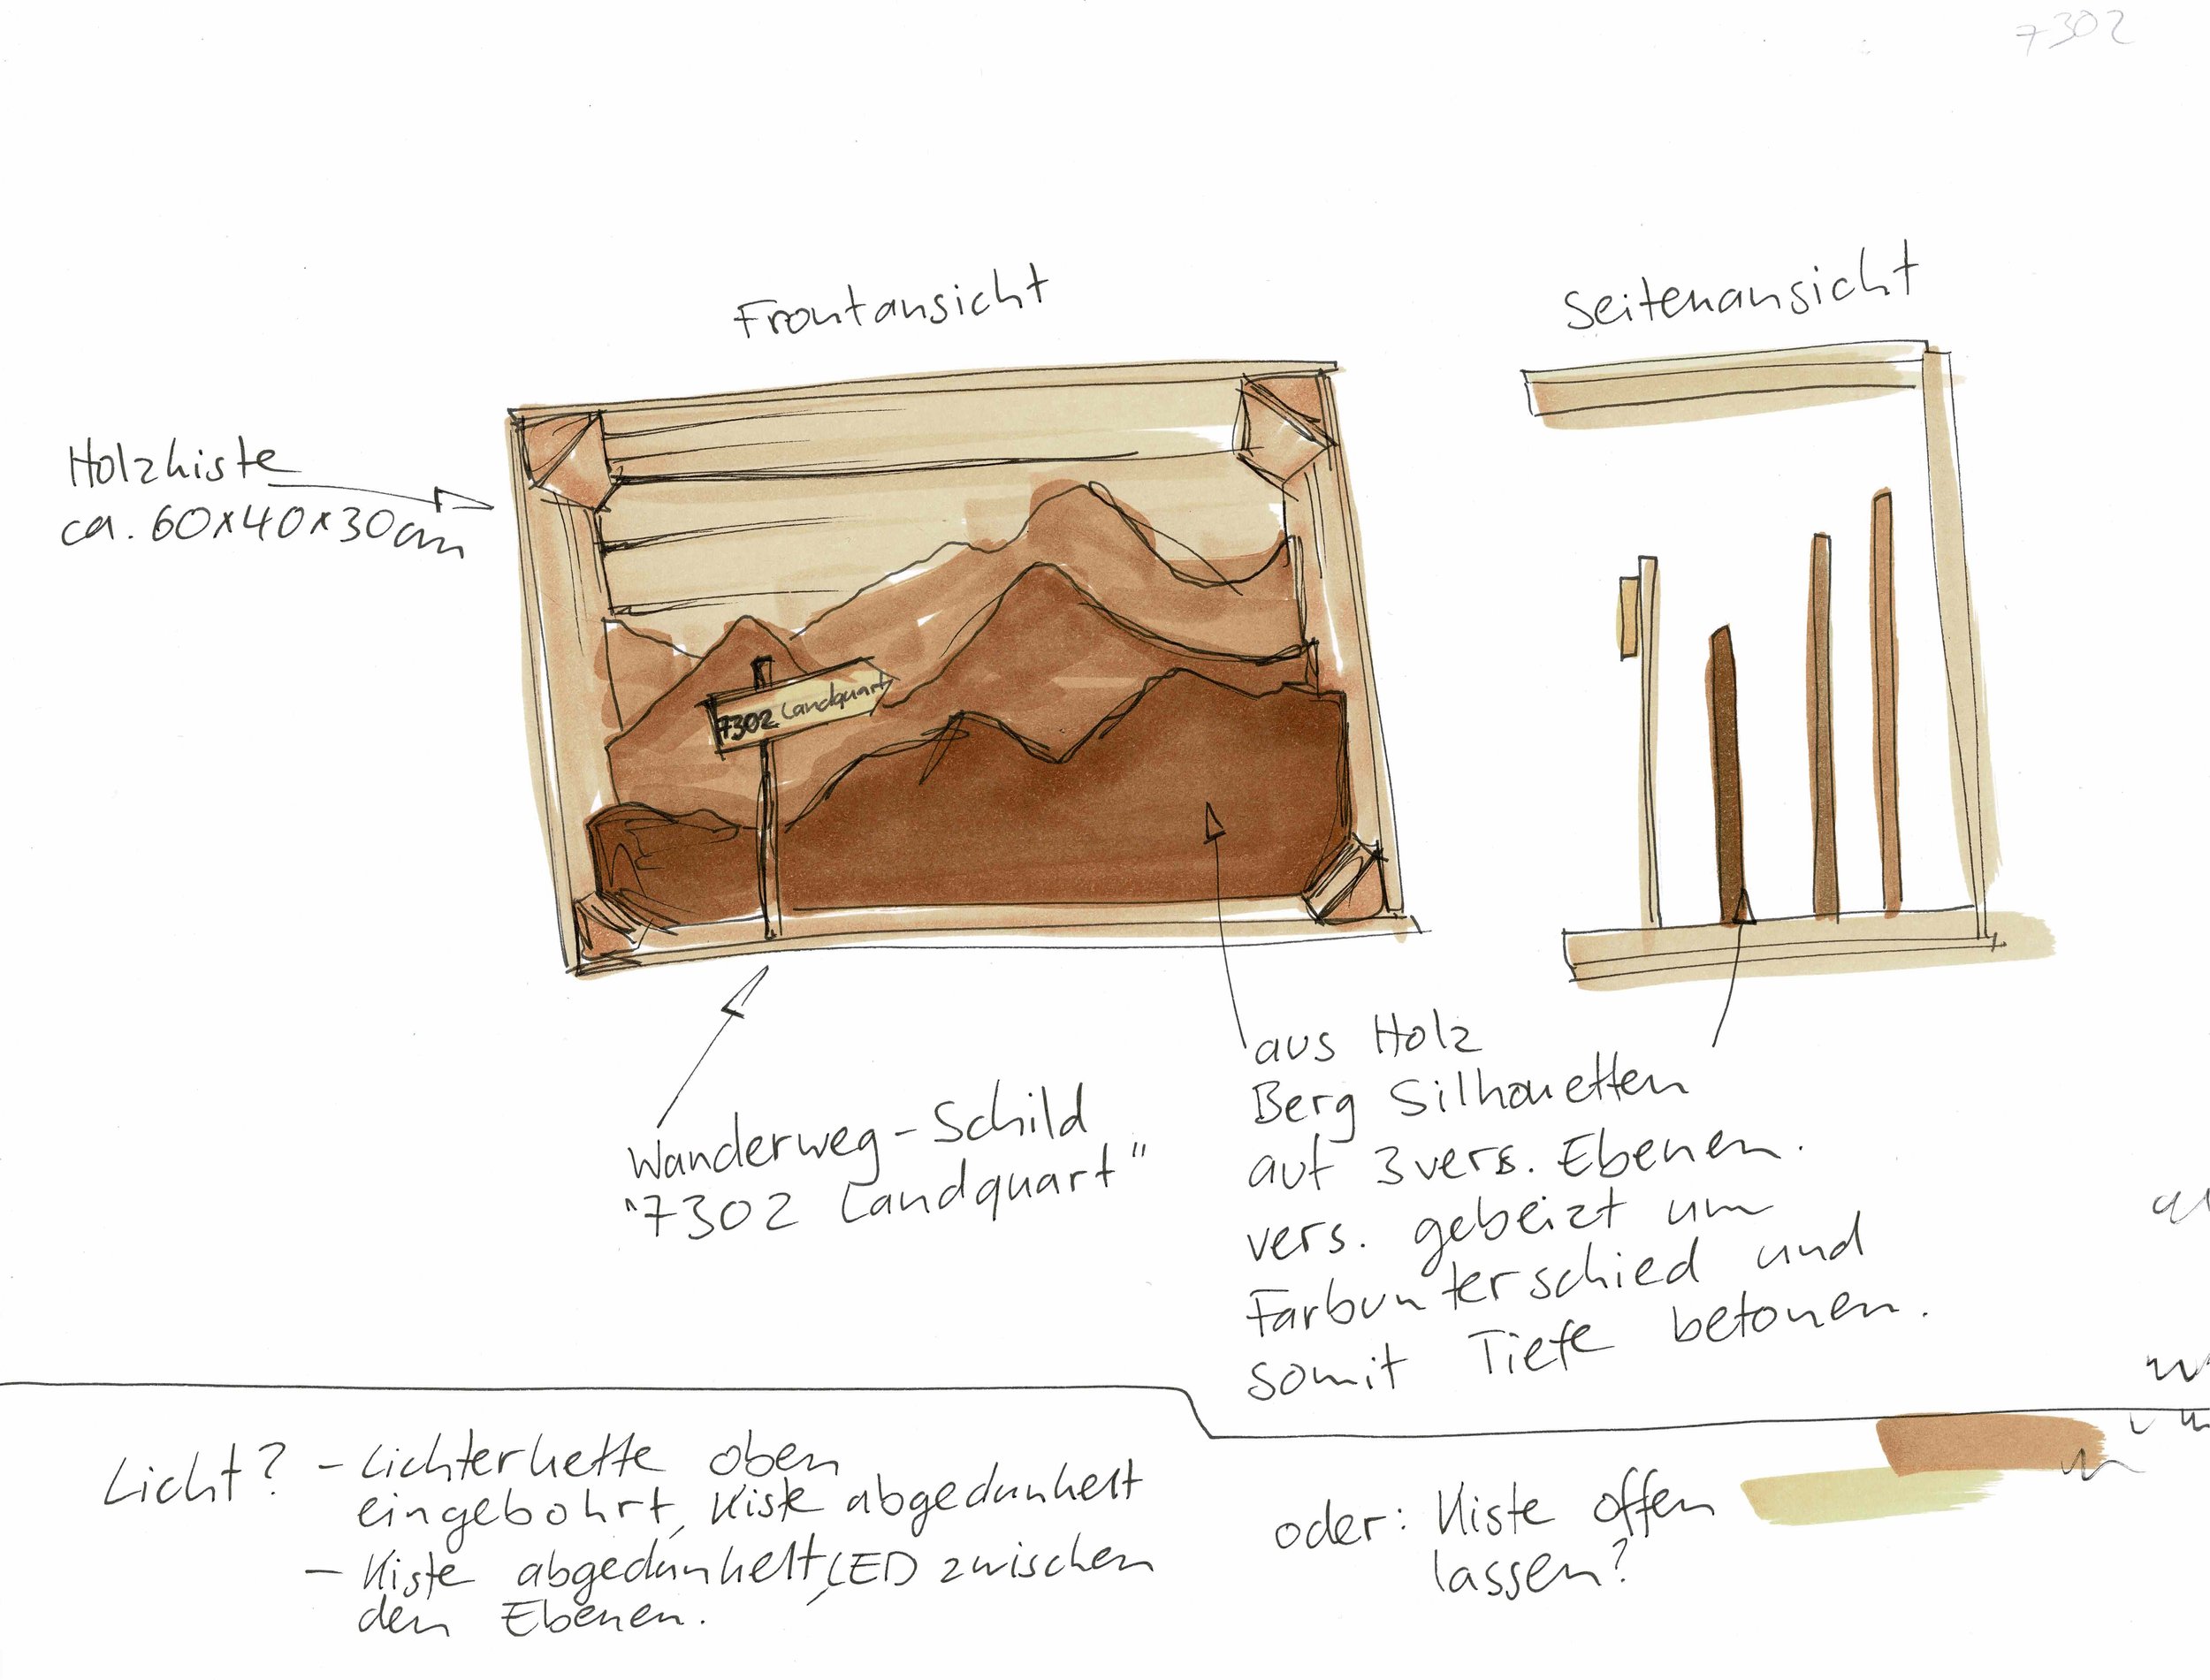 7302
Frontansicht
Seitenansicht
Holzkiste
ca. 60x40x30cm
7302 Landquart
Wanderweg-Schild
"7302 Landquart"
aus Holz
Berg Silhouetten
auf 3 vers. Ebenen.
vers. gebeizt um
Farbunterschied und
somit Tiefe betonen.
Licht? - Lichterkette oben
eingebohrt, Kiste abgedunkelt
- Kiste abgedunkelt, LED zwischen
den Ebenen.
oder: Kiste offen
lassen?